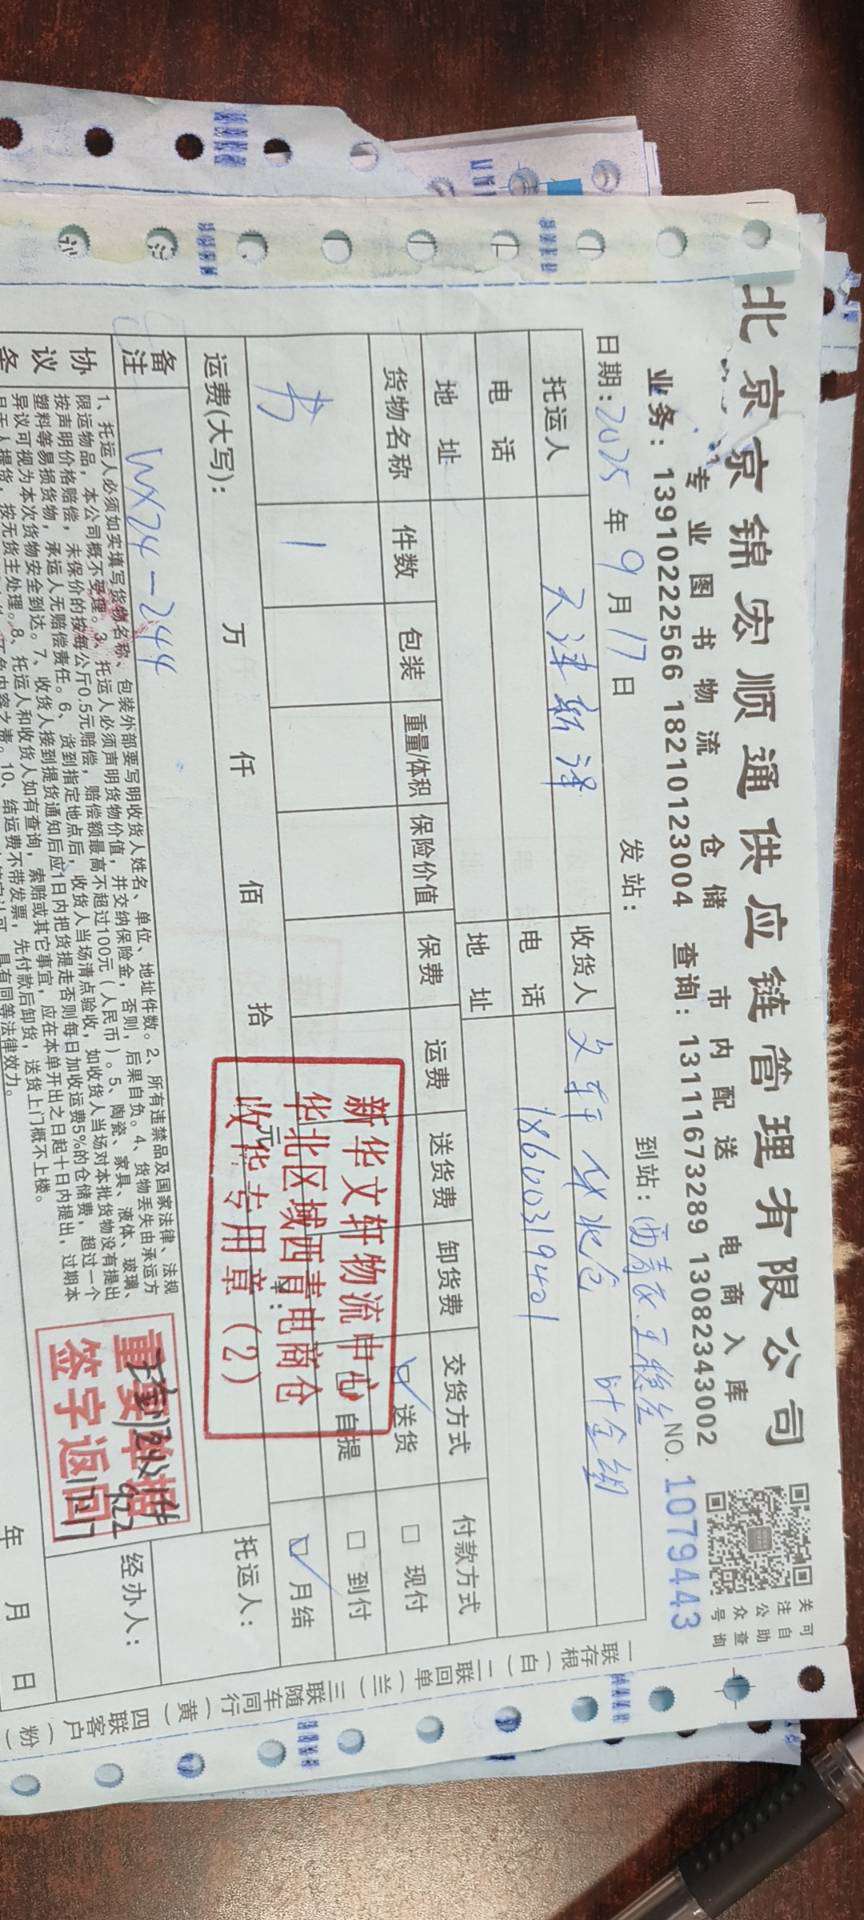 北京京锦宏顺通供应链管理有限公司
专业图书物流 仓储 市内配送 电商入库
业务：13910222566 18210123004 查询：13111673289 13082343002
关注公众号
可自助查询
日期：2025年9月17日 发站： 到站：西青区王稳庄 NO. 1079443
托运人 天津新泽 收货人 文轩华北仓 叶全绸
电话 电话 18600319401
地址 地址
货物名称 件数 包装 重量/体积 保险价值 保费 运费 送货费 卸货费 交货方式 付款方式
书 1 送货 □现付
自提 □到付
□月结
运费(大写)： 万 仟 佰 拾 元
托运人：
备注 WX24-244
经办人：
年 月 日
新华文轩物流中心
华北区域西青电商仓
收货专用章（2）
重要单据
签字返回
协议
1、托运人必须如实填写货物名称、包装外部要写明收货人姓名、单位、地址件数。2、所有违禁品及国家法律、法规
限运物品，本公司概不受理。3、托运人必须声明货物价值，并交纳保险金，否则，后果自负。4、货物丢失由承运方
按声明价格赔偿，未保价的按每公斤0.5元赔偿，赔偿额最高不超过100元（人民币）。5、陶瓷、家具、液体、玻璃、
塑料等易损货物，承运人无赔偿责任。6、货到指定地点后，收货人当场清点验收，如收货人当场对本批货物没有提出
异议可视为本次货物安全到达。7、收货人接到提货通知后应1日内把货提走否则每日加收运费5%的仓储费，超过一个
月无人提货，按无货主处理。8、托运人和收货人如有查询，索赔或其它事宜，应在本单开出之日起十日内提出，过期本
10、结运费不带发票，先付款后卸货，送货上门概不上楼。
具有同等法律效力。
一联存根（白）二联回单（兰）三联随车同行（黄）四联客户（粉）